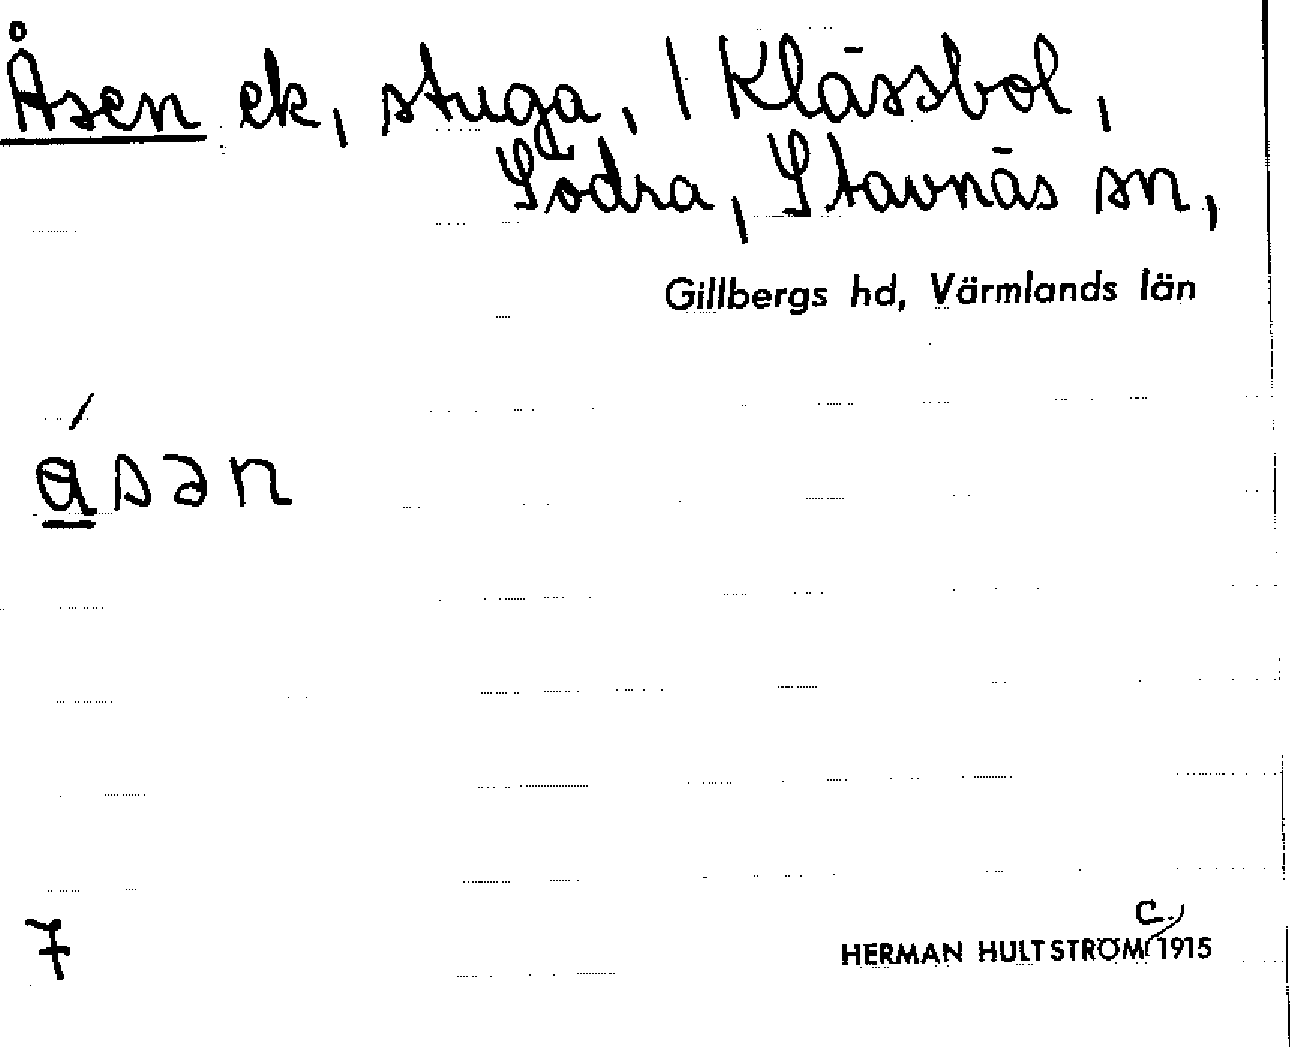 Åsen ek, stuga, / Klässbol,
Södra, Stavnäs sn,
Gillbergs hd, Värmlands län
ásən
7
HERMAN HULTSTRÖM c. 1915